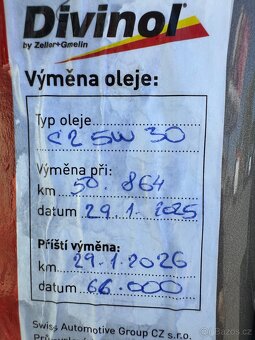 Divinol®
by Zeller+Gmelin
Výměna oleje:
Typ oleje
C2 5W 30
Výměna při:
km 50.864
datum 29.1.2025
Příští výměna:
km 29.1.2026
datum 66.000
Swiss Automotive Group CZ s.r.o.